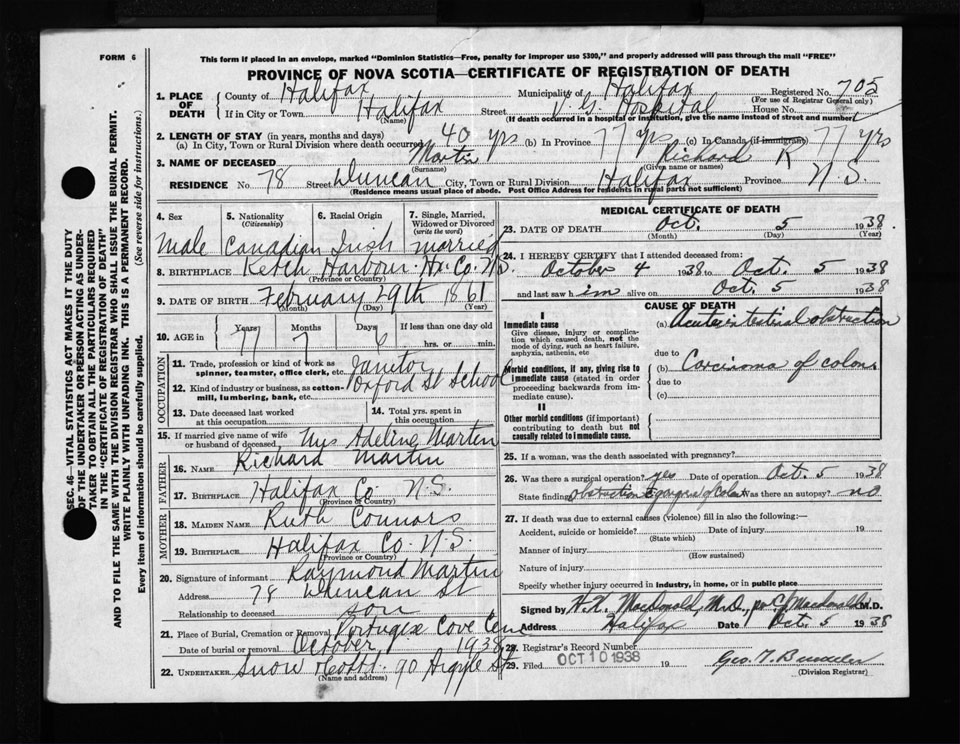 FORM 6
This form if placed in an envelope, marked "Dominion Statistics—Free, penalty for improper use $300," and properly addressed will pass through the mail "FREE"
PROVINCE OF NOVA SCOTIA—CERTIFICATE OF REGISTRATION OF DEATH
1. PLACE OF DEATH County of Halifax Municipality of Halifax Registered No. 705
(For use of Registrar General only)
If in City or Town Halifax Street V.G. Hospital House No.
(Name) (If death occurred in a hospital or institution, give the name instead of street and number)
2. LENGTH OF STAY (in years, months and days)
(a) In City, Town or Rural Division where death occurred 40 yrs (b) In Province 77 yrs (c) In Canada (if immigrant) 77 yrs
3. NAME OF DECEASED Martin Richard R
(Surname) (Given name or names)
RESIDENCE No 78 Street Duncan City, Town or Rural Division Halifax Province N.S.
(Residence means usual place of abode. Post Office Address for residents in rural parts not sufficient)
4. Sex Male
5. Nationality (Citizenship) Canadian
6. Racial Origin Irish
7. Single, Married, Widowed or Divorced (write the word) married
8. BIRTHPLACE Ketch Harbour. Hx. Co. N.S.
(Province or Country)
9. DATE OF BIRTH February 29th 1861
(Month) (Day) (Year)
10. AGE in Years 77 Months 7 Days 6 If less than one day old
hrs. or min.
OCCUPATION
11. Trade, profession or kind of work as spinner, teamster, office clerk, etc. Janitor
12. Kind of industry or business, as cotton-mill, lumbering, bank, etc. Oxford St School
13. Date deceased last worked at this occupation
14. Total yrs. spent in this occupation
15. If married give name of wife or husband of deceased Mrs Adeline Martin
FATHER
16. NAME Richard Martin
17. BIRTHPLACE Halifax Co N.S.
(Province or Country)
MOTHER
18. MAIDEN NAME Ruth Connors
19. BIRTHPLACE Halifax Co. N.S.
(Province or Country)
20. Signature of informant Raymond Martin
Address 78 Duncan St
Relationship to deceased son
21. Place of Burial, Cremation or Removal Portugue Cove Cem
Date of burial or removal October 1938
22. UNDERTAKER Snow & Co Ltd. 90 Argyle St
(Name and address)
MEDICAL CERTIFICATE OF DEATH
23. DATE OF DEATH Oct. 5 1938
(Month) (Day) (Year)
24. I HEREBY CERTIFY that I attended deceased from:
October 4 1938 to Oct. 5 1938
and last saw him alive on Oct. 5 1938
CAUSE OF DEATH
I
Immediate cause (a) Acute intestinal obstruction
Give disease, injury or complication which caused death, not the mode of dying, such as heart failure, asphyxia, asthenia, etc
due to
Morbid conditions, if any, giving rise to immediate cause (stated in order proceeding backwards from immediate). (b) Carcinoma of colon
due to
(c)
II
Other morbid conditions (if important) contributing to death but not causally related to immediate cause.
25. If a woman, was the death associated with pregnancy?
26. Was there a surgical operation? yes Date of operation Oct. 5 1938
State finding Obstruction & gangrene of colon Was there an autopsy? no
27. If death was due to external causes (violence) fill in also the following:—
Accident, suicide or homicide? Date of injury 19
(State which)
Manner of injury
(How sustained)
Nature of injury
Specify whether injury occurred in industry, in home, or in public place
Signed by H.K. MacDonald, M.D., per C. J. Macdonald M.D.
Address Halifax Date Oct. 5 1938
28. Registrar's Record Number
29. Filed OCT 10 1938 19 Geo. T.
(Division Registrar)
SEC. 46—VITAL STATISTICS ACT MAKES IT THE DUTY
OF THE UNDERTAKER OR PERSON ACTING AS UNDER-
TAKER TO OBTAIN ALL THE PARTICULARS REQUIRED
IN THE "CERTIFICATE OF REGISTRATION OF DEATH"
AND TO FILE THE SAME WITH THE DIVISION REGISTRAR WHO SHALL ISSUE THE BURIAL PERMIT.
WRITE PLAINLY WITH UNFADING INK. THIS IS A PERMANENT RECORD.
Every item of information should be carefully supplied. (See reverse side for instructions.)